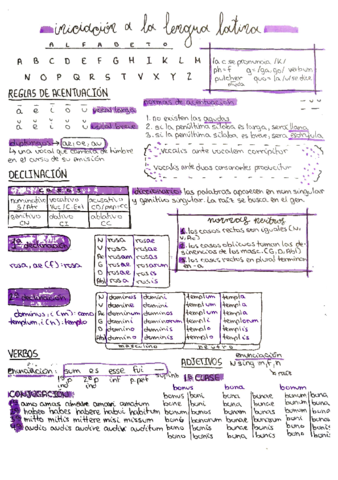 iniciación a la lengua latina
A L F A B E T O
A B C D E F G H I K L M
N O P Q R S T V X Y Z
la c se pronuncia /K/
ph = f
pulcher
REGLAS DE ACENTUACIÓN
ā ē ī ō ū vocal larga
ă ĕ ĭ ŏ ŭ vocal breve
diptongos → ae, oe, au
Es una vocal que cambia de timbre
en el curso de su emisión
normas de acentuación
1. no existen las agudas
2. si la penúltima sílaba es larga, será llana
3. si la penúltima sílaba es breve, será esdrújula
vocalis ante vocalem corripitur
vocalis ante duas consonantes producitur
DECLINACIÓN
nominativo vocativo acusativo
S/Atr
genitivo dativo ablativo
CN CI CC
diccionario: las palabras aparecen en nom singular
y genitivo singular. La raíz se busca en el gen.
normas
los casos rectos son iguales (N,
V, Ac)
los casos oblicuos toman las de-
sinencias de los masc. (G, D, Abl)
los casos rectos en plural terminan
en -a
declinación
rosa, ae (f): rosa
N rosa rosae
V rosa rosae
Ac rosam rosas
G rosae rosarum
D rosae rosis
Abl rosa rosis
declinación
dominus, i (m): amo
templum, i (n): templo
N dominus domini templum templa
V domine domini templum templa
Ac dominum dominos templum templa
G domini dominorum templi templorum
D domino dominis templo templis
Abl domino dominis templo templis
masculino neutro
VERBOS
enunciación: sum es esse fui
1ªp 2ªp inf p. perf
CONJUGACIONES
amo amas amare amavi amatum
habeo habes habere habui habitum
mitto mittis mittere misi missum
audio audis audire audivi auditum
ADJETIVOS
enunciación
N sing m, f, n
1ª CLASE
bonus bona bonum
bonus boni bona bonae bonum bona
bone boni bona bonae bonum bona
bonum bonos bonam bonas bonum bona
boni bonorum bonae bonarum boni bonorum
bono bonis bonae bonis bono bonis
bono bonis bona bonis bono bonis